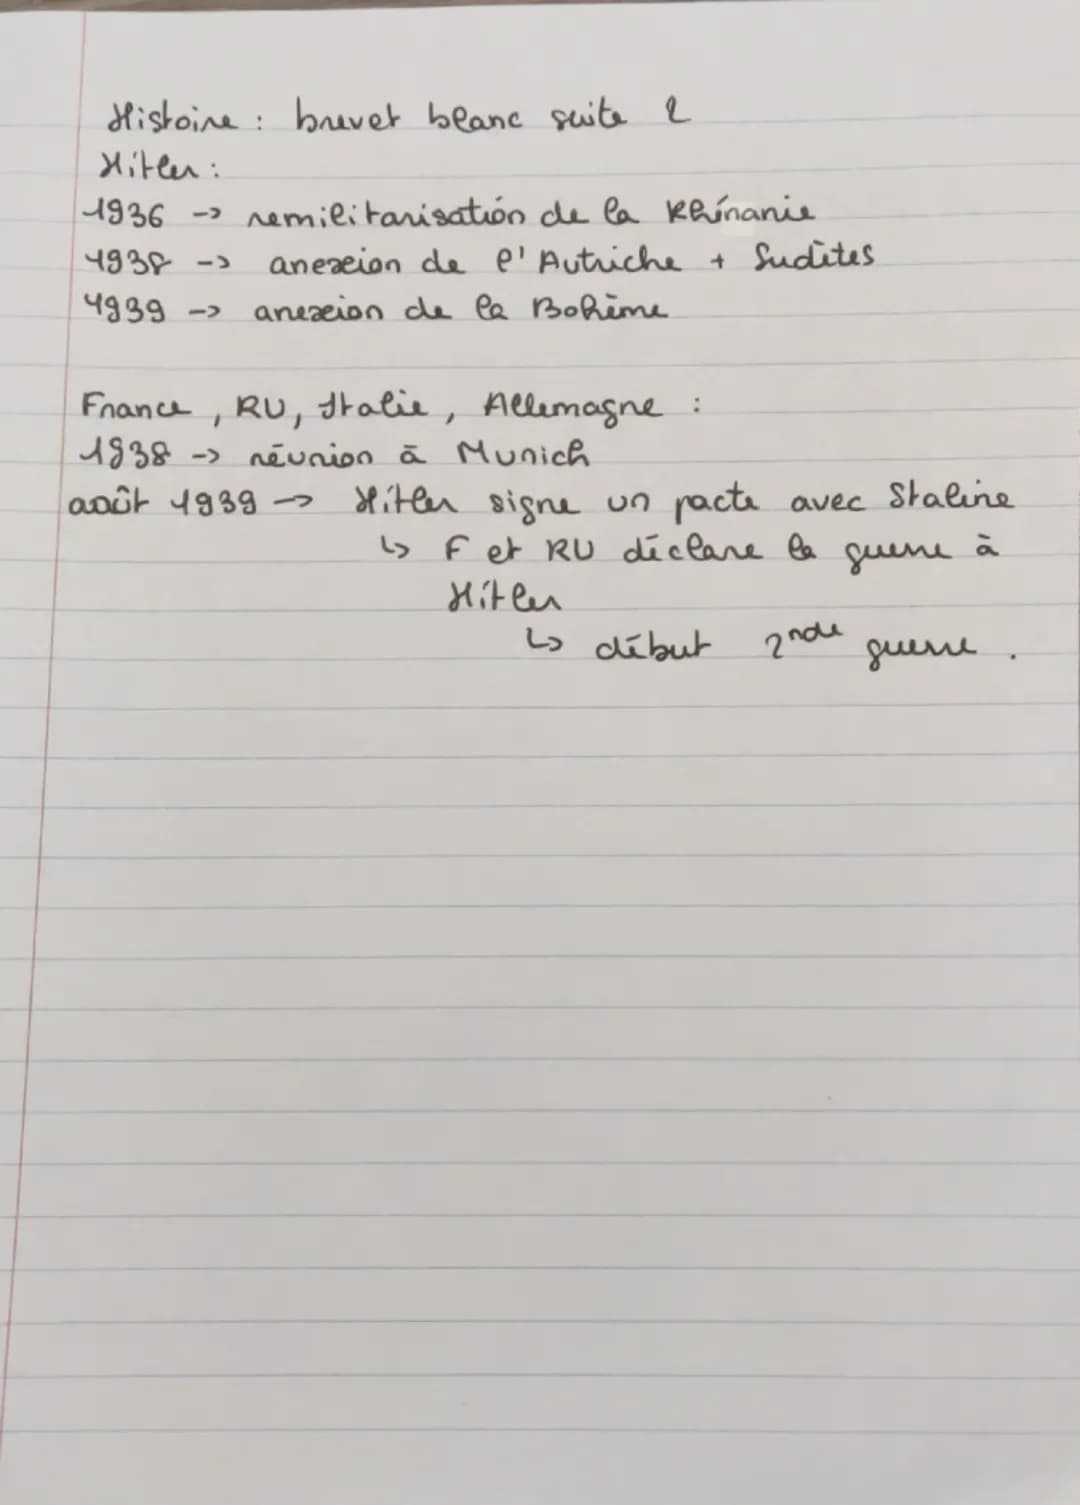 Histoire : brevet blanc suite 2
Hitler :
1936 -> remilitarisation de la Rhénanie
1938 -> anexion de l'Autriche + Sudètes
1939 -> anexion de la Bohème
France, RU, Italie, Allemagne :
1938 -> réunion à Munich
août 1939 -> Hitler signe un pacte avec Staline
↳ F et RU déclare la guerre à
Hitler
↳ début 2nde guerre.